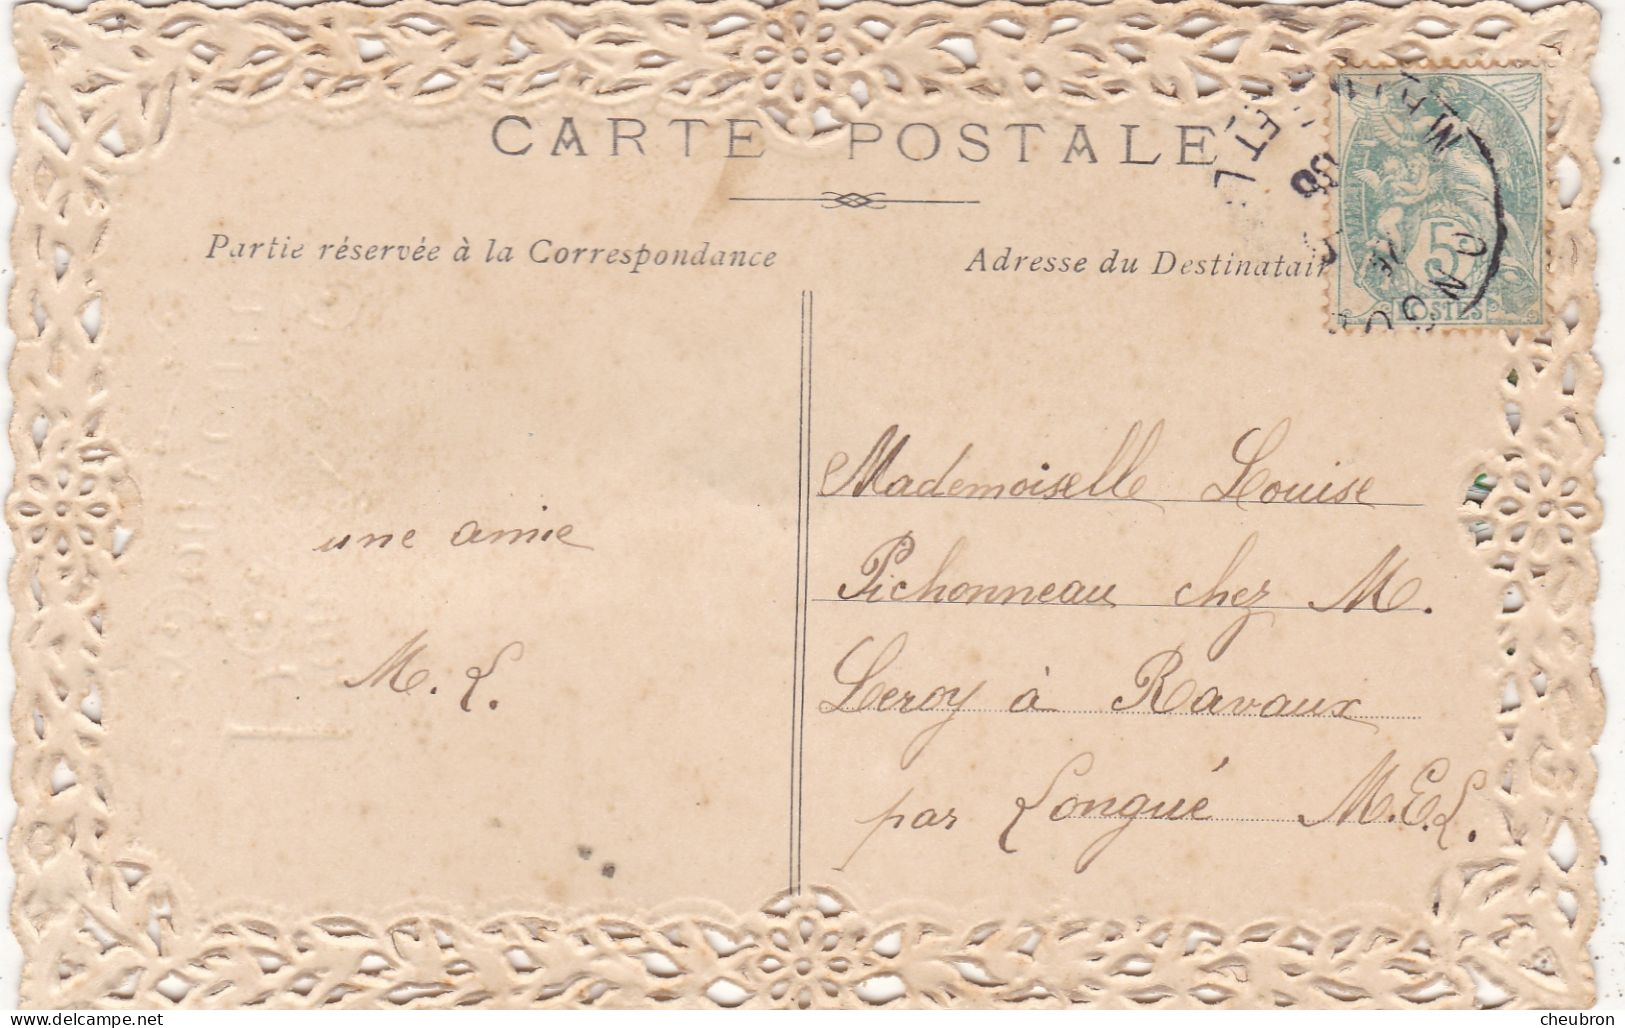 CARTE POSTALE
Partie réservée à la Correspondance
Adresse du Destinatair
5
POSTES
une amie
M. L.
Mademoiselle Louise
Pichonneau chez M.
Leroy à Ravaux
par Longué M.E.L.
delcampe.net
cheubron